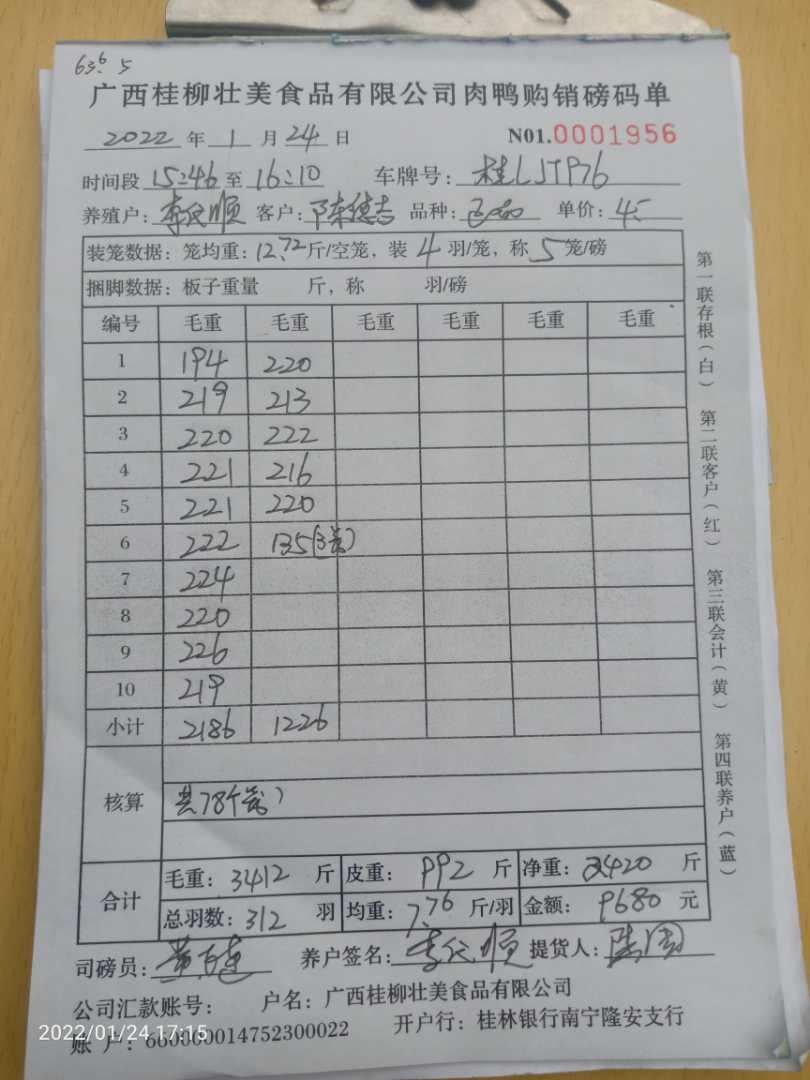 63.6 5
广西桂柳壮美食品有限公司肉鸭购销磅码单
2022 年 1 月 24 日 N01.0001956
时间段 15:46 至 16:10 车牌号: 桂LJ
养殖户: 李 顺 客户: 陈德志 品种: 单价: 4
装笼数据: 笼均重: 12.72 斤/空笼, 装 4 羽/笼, 称 5 笼/磅
捆脚数据: 板子重量 斤, 称 羽/磅
编号 毛重 毛重 毛重 毛重 毛重 毛重
1 194 220
2 219 213
3 220 222
4 221 216
5 221 220
6 222 135(3笼)
7 224
8 220
9 226
10 219
小计 2186 1226
核算 共78个笼
合计 毛重: 3412 斤 皮重: 992 斤 净重: 2420 斤
总羽数: 312 羽 均重: 7.76 斤/羽 金额: 9680 元
司磅员: 黄 养户签名: 李 顺 提货人:
公司汇款账号: 户名: 广西桂柳壮美食品有限公司
账 户: 660000014752300022 开户行: 桂林银行南宁隆安支行
2022/01/24 17:15
第一联存根(白) 第二联客户(红) 第三联会计(黄) 第四联养户(蓝)